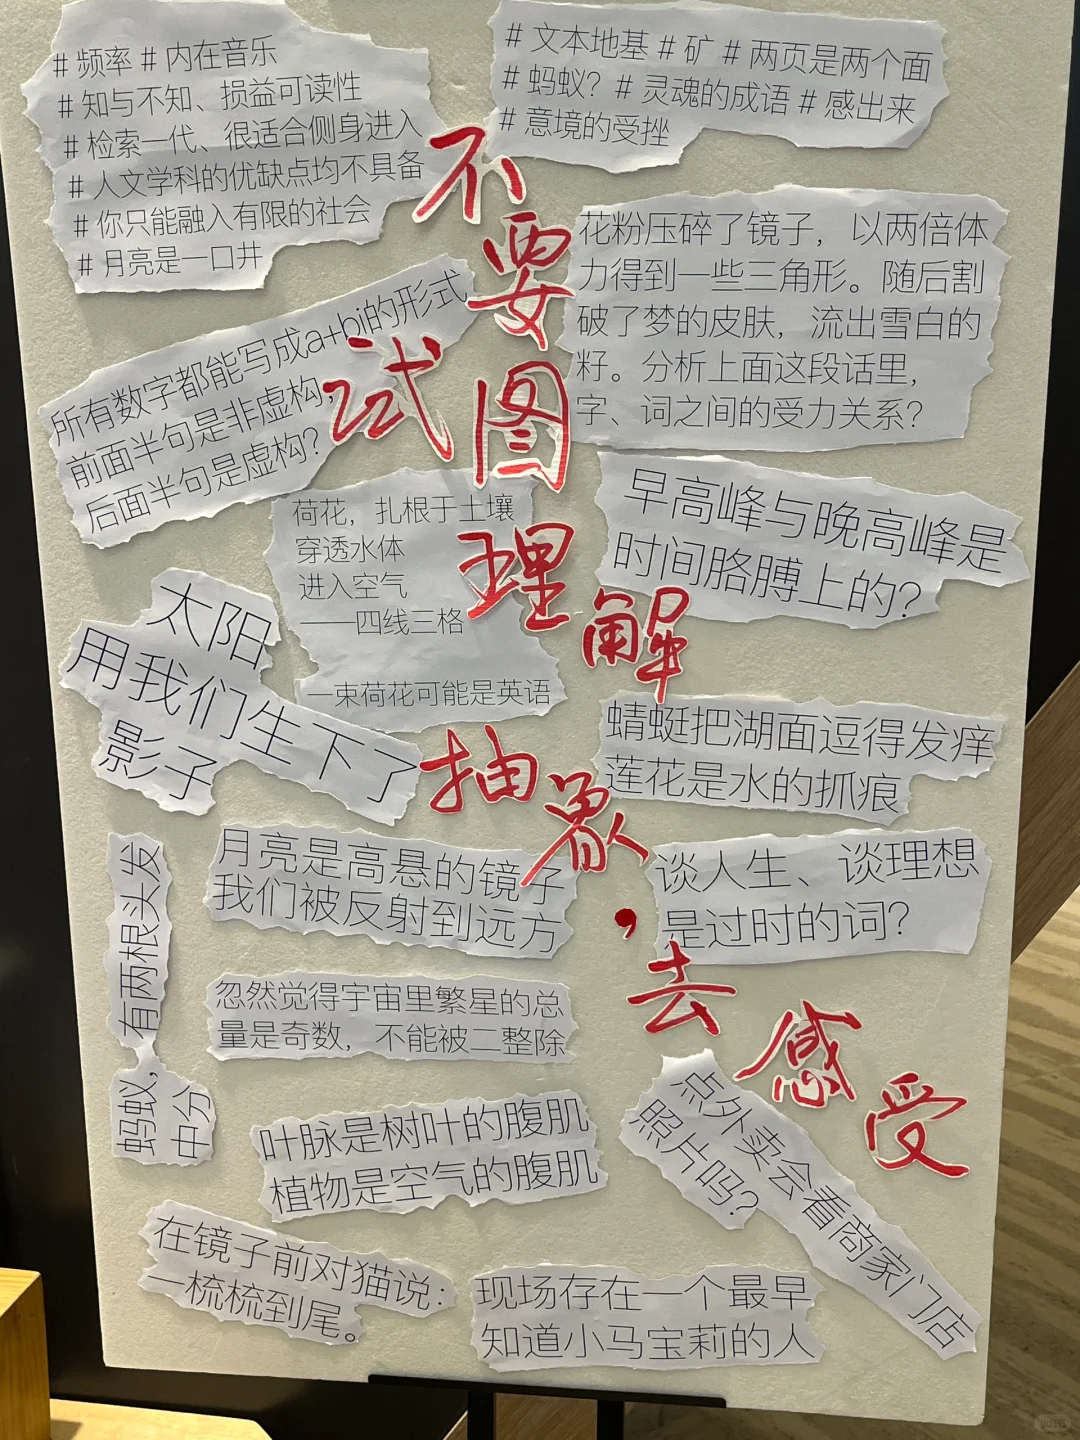 # 频率 # 内在音乐
# 知与不知、损益可读性
# 检索一代、很适合侧身进入
# 人文学科的优缺点均不具备
# 你只能融入有限的社会
# 月亮是一口井
# 文本地基 # 矿 # 两页是两个面
# 蚂蚁？# 灵魂的成语 # 感出来
# 意境的受挫
不要试图理解抽象，去感受
花粉压碎了镜子，以两倍体
力得到一些三角形。随后割
破了梦的皮肤，流出雪白的
籽。分析上面这段话里，
字、词之间的受力关系？
所有数字都能写成a+bi的形式
前面半句是非虚构，
后面半句是虚构？
荷花，扎根于土壤
穿透水体
进入空气
——四线三格
一束荷花可能是英语
早高峰与晚高峰是
时间胳膊上的？
太阳
用我们生下了
影子
蜻蜓把湖面逗得发痒
莲花是水的抓痕
月亮是高悬的镜子
我们被反射到远方
谈人生、谈理想
是过时的词？
有两根头发
蚂蚁，
中分
忽然觉得宇宙里繁星的总
量是奇数，不能被二整除
叶脉是树叶的腹肌
植物是空气的腹肌
点外卖会看商家门店
照片吗？
在镜子前对猫说：
一梳梳到尾。
现场存在一个最早
知道小马宝莉的人